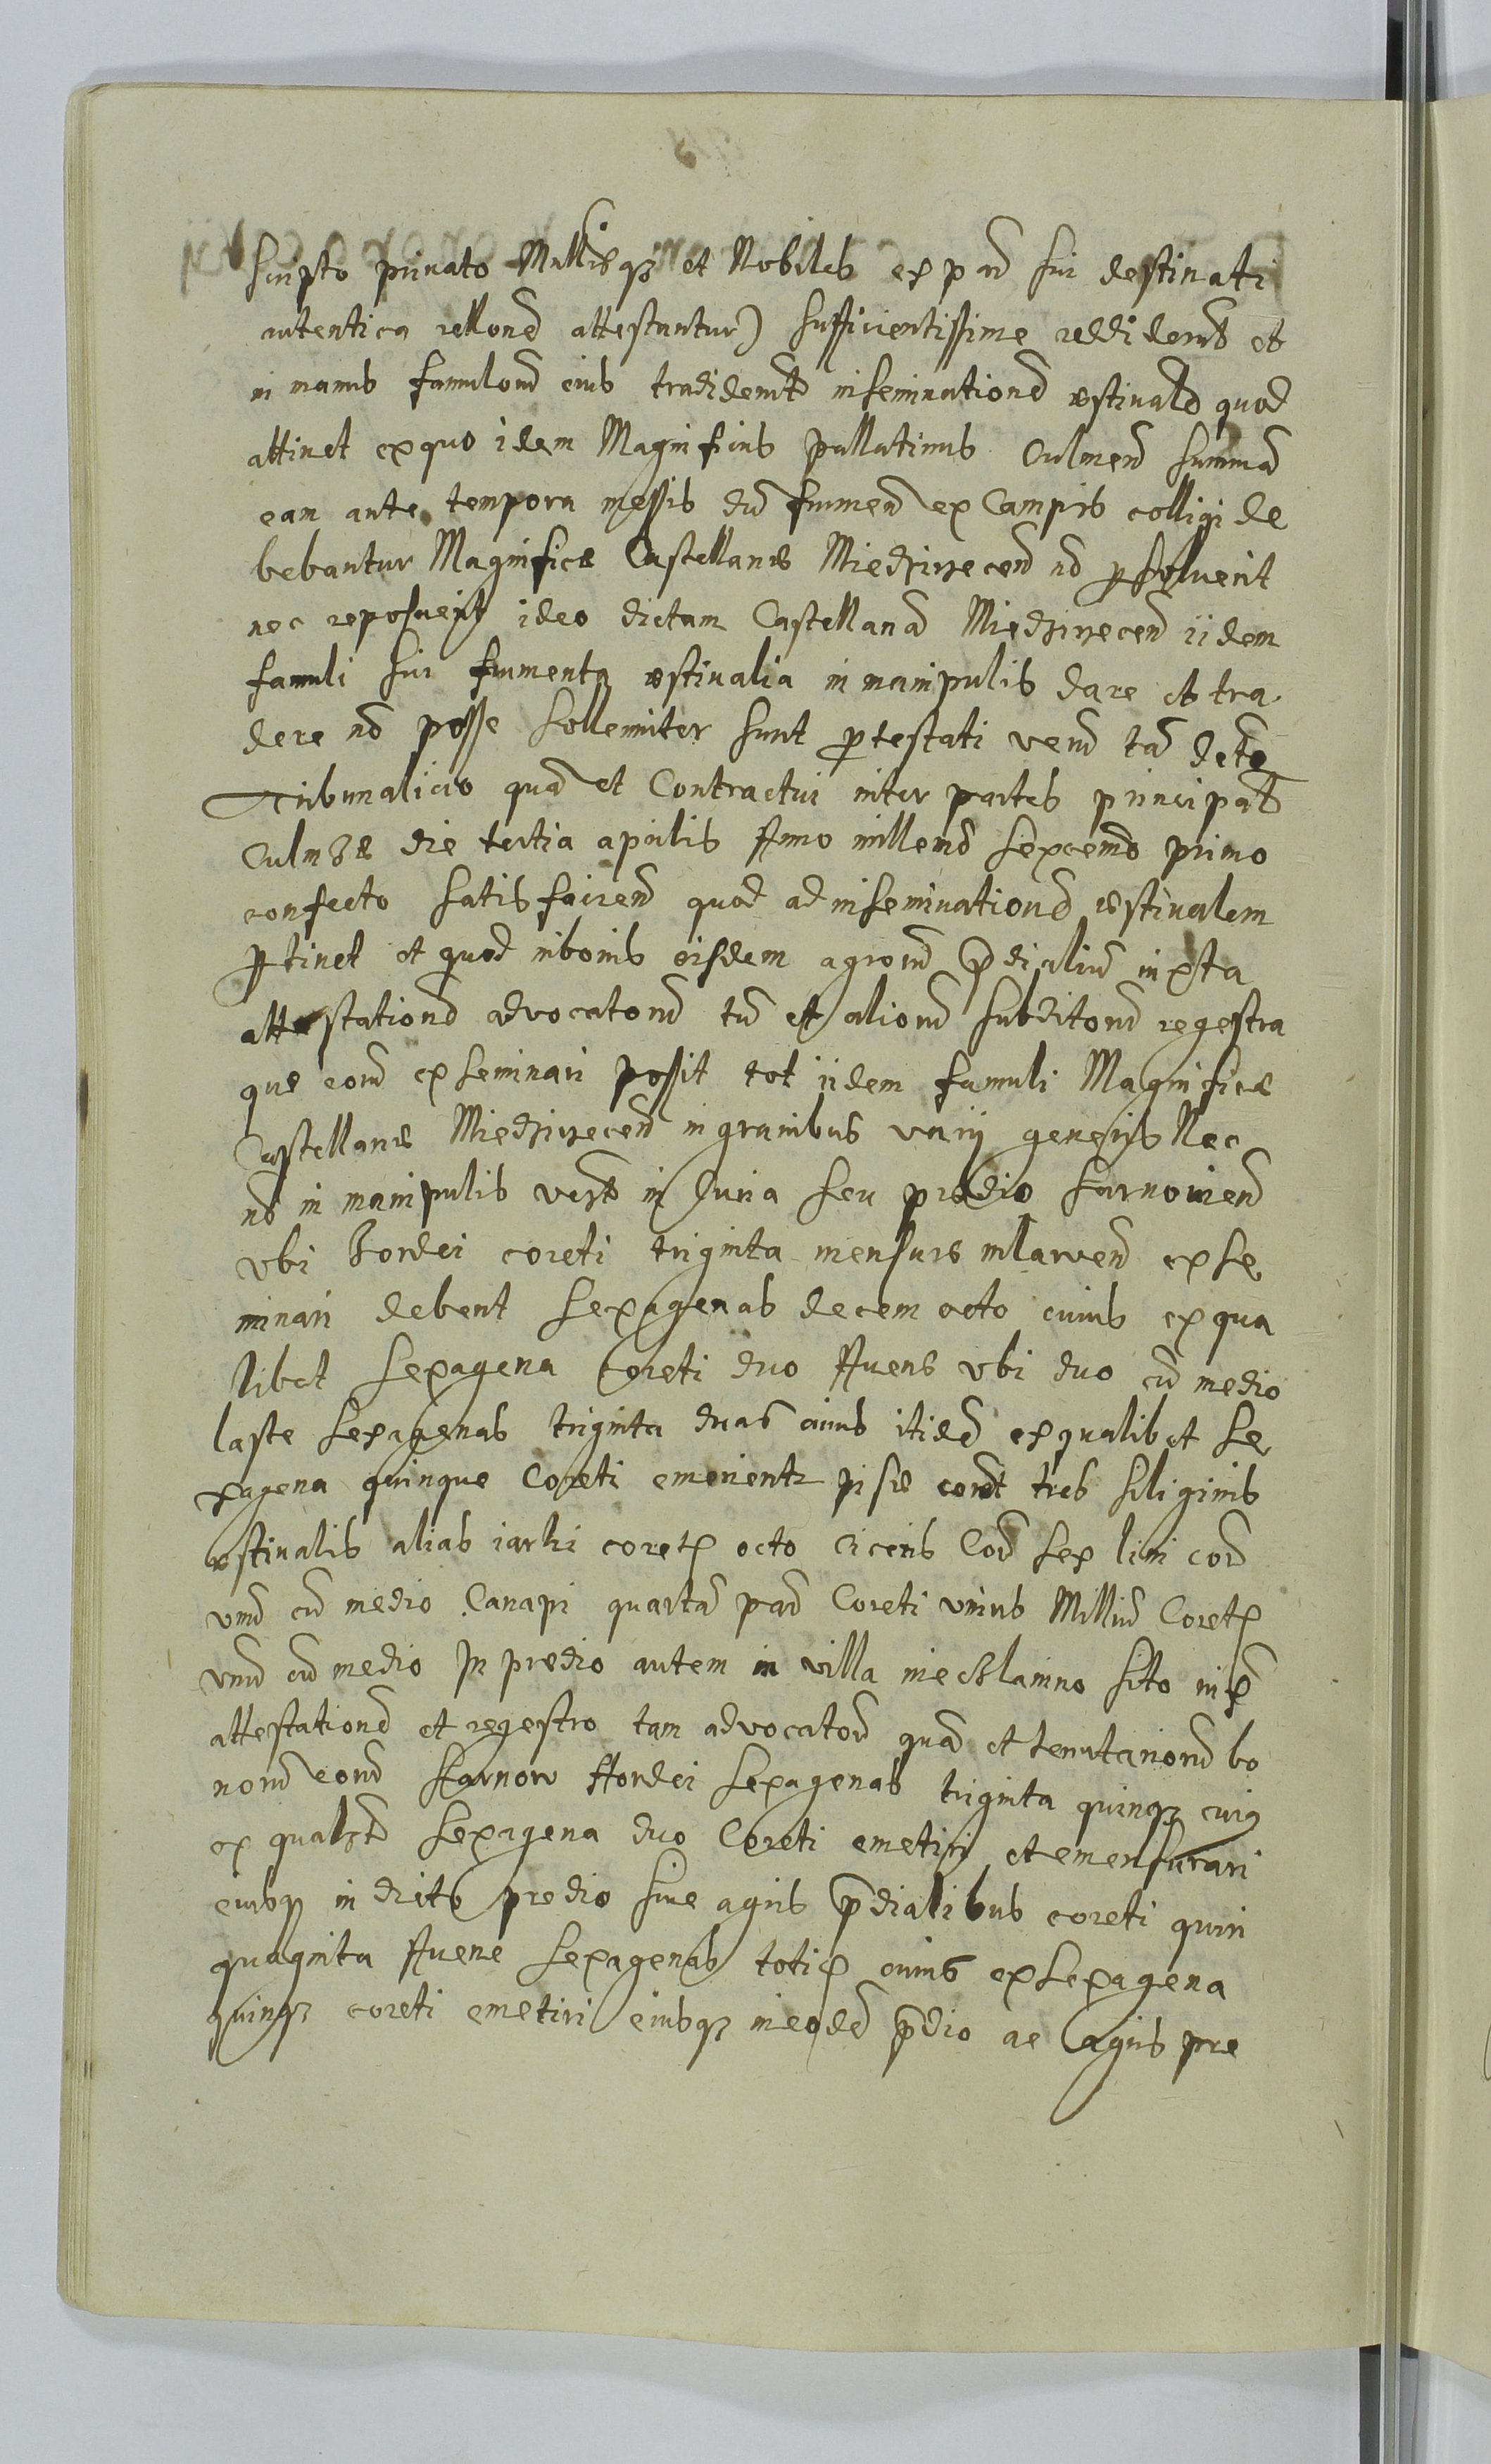 scripto priuato Mllisqz et Nobiles ex pad sui destinati
autentica rellond attestantur) sufficientissime reddiderut et
in manus famulorud eius tradiderut inseminationd æstivald quod
attinet ex quo idem Magnificus Pallatinus Culmend summad
eam ante tempora messis dud frumend ex Campis colligi de
bebantur Magnificæ Castellanæ Miedzirzecend nd psoluerit
nec reposuerit ideo dictam Castellanad Miedzirzecend iidem
famuli sui frumenta æstiualia in manipulis dare et tra
dere nd posse sollemniter sunt ptestati verud tad decto
Tribunalicio quad et Contractui inter partes principales
Culmsæ die tertia aprilis Anno millemo sexcemo primo
confecto satisfaciend quod ad inseminationd æstiualem
ptinet et quod in bonis eisdem agrorud pdialiud iuxta
attestationd advocatorud tud et aliorud subditorud regestra
que eorud exseminari possit tot iidem famuli Magnificæ
Castellanæ Miedzirzecend in granibus varij generis Nec
nd in manipulis vertd in Curia seu prædio Tarnowiend
vbi hordei coreti triginta mensuræ Inlawend exse
minari debent sexagenas decem octo cuius ex qua
libet sexagena Coreti duo Auenæ vbi duo cud medio
laste sexagenas triginta duas cuius itided ex qualibet se
xagena quinque Coreti emerientr pisæ coret tres siliginis
æstiualis alias iarki coret octo ciceris Cord sex lini cord
vnud cud medio Canapi quartad pard Coreti vnius Milliud Coret
vnud cud medio In predio autem in villa sito iux
attestationd et regestro tam advocatord quad et tenutariorud bo
norud eorud Tarnow Hordei sexagenas triginta quinqz cuiq
ex qualbtd sexagena duo Coreti emetiri et emensurari
eiusqz in dicto predio siue agris pdialibus coreti quin
quaginta Auene sexagenas toti cuius ex sexagena
quinqz coreti emetiri eiusqz in eodd pdio ac agris pre